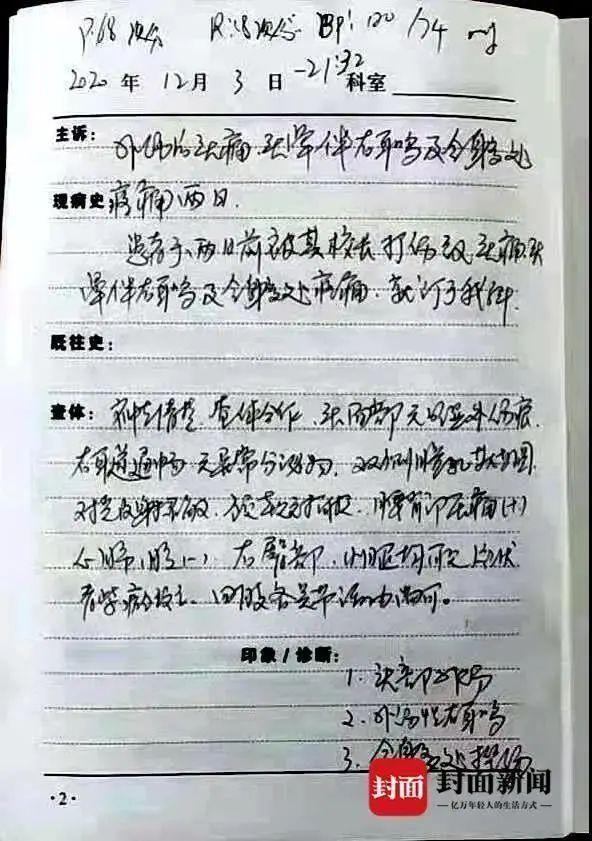 P:68次/分 R:18次/分 BP:120/74 mg
2020年12月3日-21:32科室
主诉: 外伤后头痛头晕伴右耳鸣及全身多处
现病史: 疼痛两日.
患者于两日前被其校长打伤致头痛头
晕伴右耳鸣及全身多处疼痛.就订于我科.
既往史:
查体: 神志清楚.查体合作.头面部无明显外伤痕
右耳道通畅无异常分泌物.双侧瞳孔等大等圆
对光反射灵敏.颈软无抵抗.腰背部压痛(+)
心肺腹(-).右臀部、小腿均可见片状
青紫瘀斑.四肢各关节活动尚可。
印象/诊断:
1.头部外伤
2.外伤性右耳鸣
3.全身多处挫伤
·2·
封面 封面新闻
亿万年轻人的生活方式